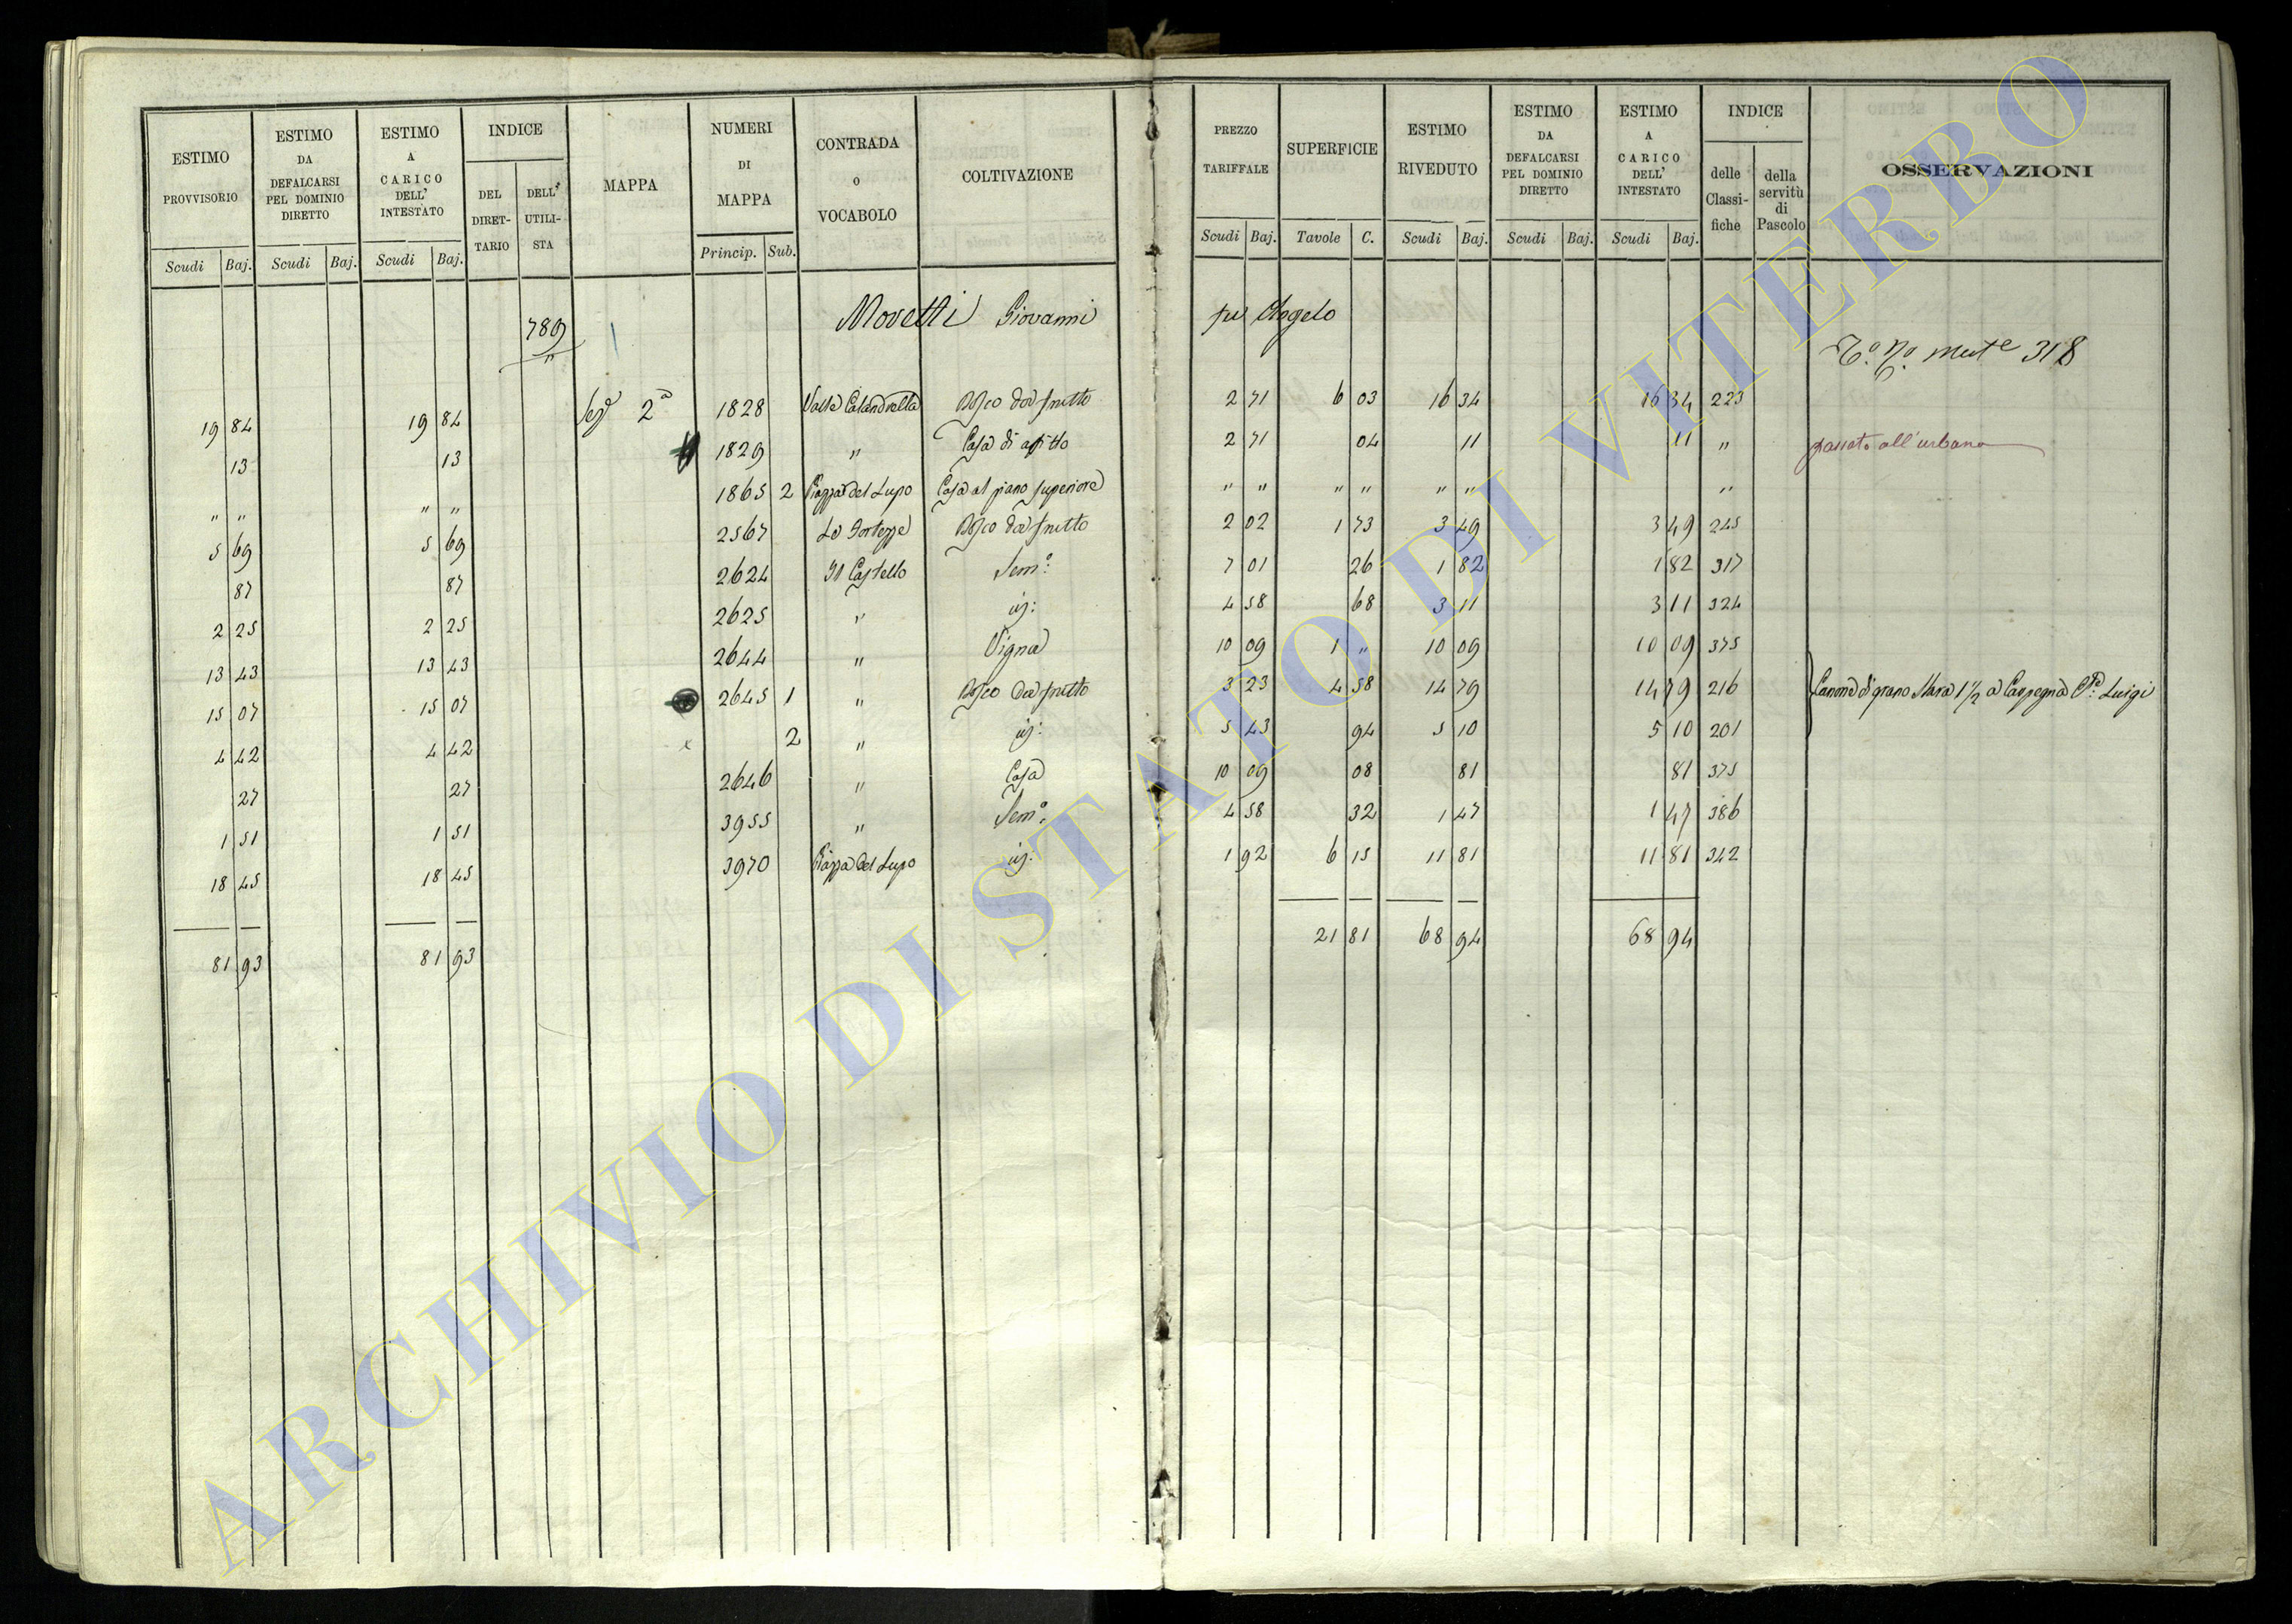 ESTIMO PROVVISORIO | ESTIMO DA DEFALCARSI PEL DOMINIO DIRETTO | ESTIMO A CARICO DELL' INTESTATO | INDICE DEL DIRETTARIO | DELL' UTILISTA | MAPPA | NUMERI DI MAPPA | CONTRADA O VOCABOLO | COLTIVAZIONE | PREZZO TARIFFALE | SUPERFICIE | ESTIMO RIVEDUTO | ESTIMO DA DEFALCARSI PEL DOMINIO DIRETTO | ESTIMO A CARICO DELL' INTESTATO | INDICE delle Classifiche | della servitù di Pascolo | OSSERVAZIONI
Scudi Baj. | Scudi Baj. | Scudi Baj. | Princip. Sub. | Scudi Baj. | Tavole C. | Scudi Baj. | Scudi Baj. | Scudi Baj.
789 Moretti Giovanni fu Angelo
" 318
19 84 | 19 84 | Sezᵉ 2ª | 1828 | Valle Calandrella | Bosco da frutto | 2 71 | 6 03 | 16 34 | 16 34 | 223
13 | 13 | 1829 | " | Casa di affitto | 2 71 | 04 | 11 | 11 | " | passato all'urbano
" " | " " | 1865 2 | Piazza del Lupo | Casa al piano superiore | " " | " " | " " | "
5 69 | 5 69 | 2567 | Le Fortezze | Bosco da frutto | 2 02 | 1 73 | 3 49 | 3 49 | 245
87 | 87 | 2624 | Il Castello | Semº: | 7 01 | 26 | 1 82 | 1 82 | 317
2 25 | 2 25 | 2625 | " | 4 58 | 68 | 3 11 | 3 11 | 324
13 43 | 13 43 | 2644 | " | Vigna | 10 09 | 1 " | 10 09 | 10 09 | 375
15 07 | 15 07 | 2645 1 | " | Bosco da frutto | 3 23 | 4 58 | 14 79 | 14 79 | 216 | Canone di grano Stara 1 1/2 a Carpegna Luigi
4 42 | 4 42 | 2 | " | 5 43 | 94 | 5 10 | 5 10 | 201
27 | 27 | 2646 | " | Casa | 10 09 | 08 | 81 | 81 | 375
1 51 | 1 51 | 3955 | " | Semº: | 4 58 | 32 | 1 47 | 1 47 | 386
18 45 | 18 45 | 3970 | Piazza del Lupo | 1 92 | 6 15 | 11 81 | 11 81 | 342
81 93 | 81 93 | 21 81 | 68 94 | 68 94
ARCHIVIO DI STATO DI VITERBO